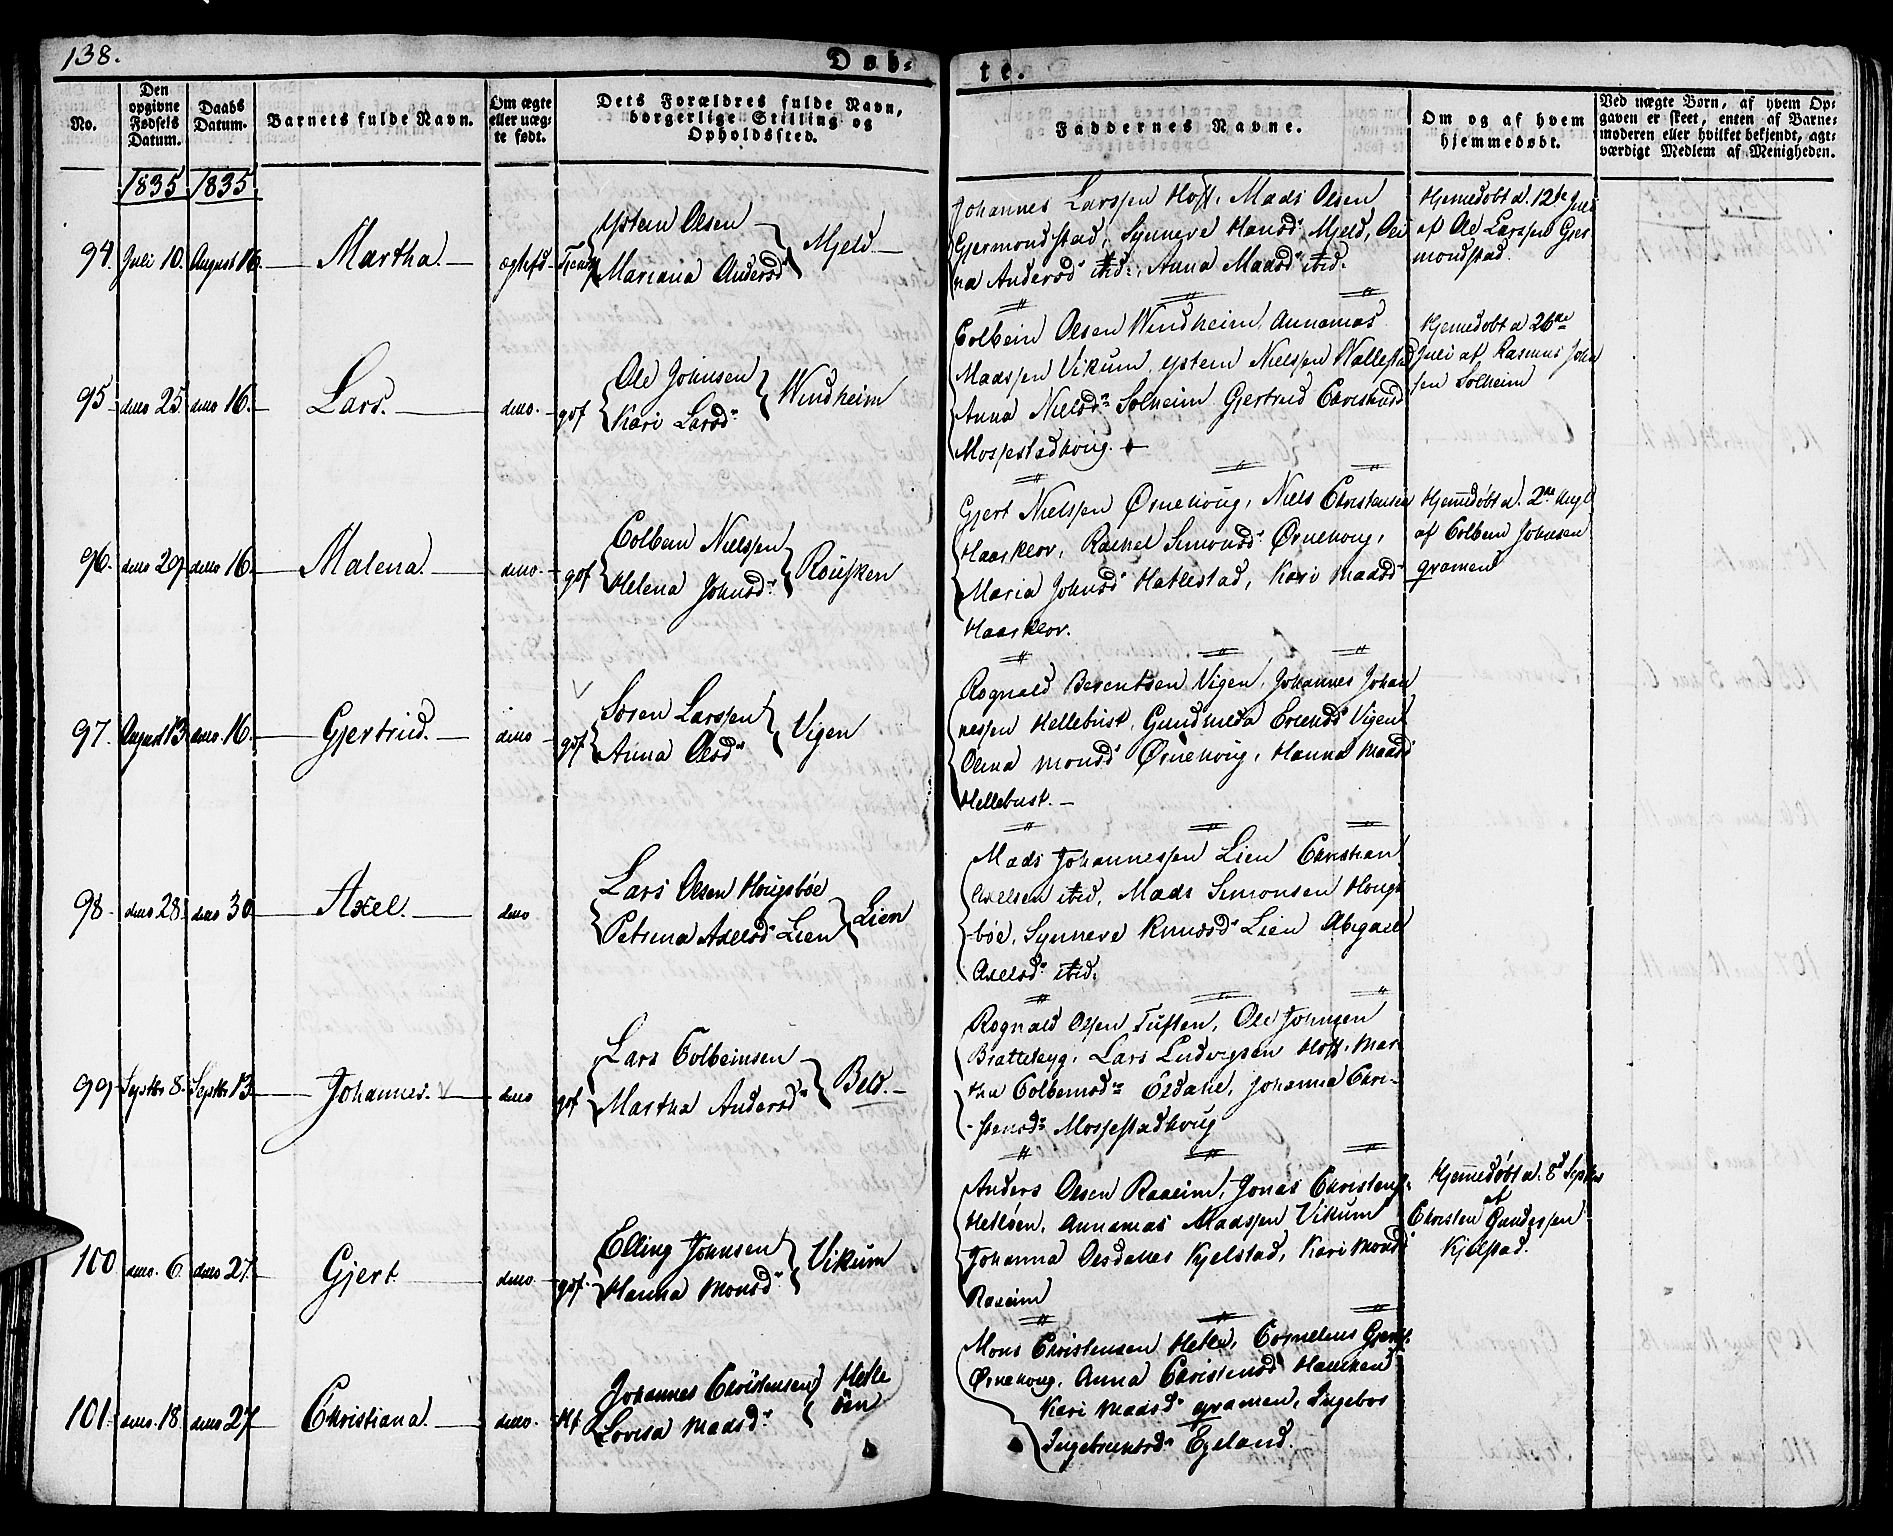 138.
Døb-
te.
No.
Den opgivne Fødsels Datum.
Daabs Datum.
Barnets fulde Navn.
Om ægte eller uægte født.
Dets Forældres fulde Navn, borgerlige Stilling og Opholdssted.
Faddernes Navne.
Om og af hvem hjemmedøbt.
Ved uægte Børn, af hvem Op-
gaven er skeet, enten af Barne-
moderen eller hvilket bekjendt, agt-
værdigt Medlem af Menigheden.
1835 1835
94. Juli 10. August 16. Martha.
Ystein Olsen
Mariana Andersdr
Mjeld
Johannes Larssen Hoff, Mads Olsen
Gjermondstad, Synneve Hansdr Mjeld, Oli
na Andersdr ibid:, Anna Madsdr ibid:
Hjemedøbt d. 12te Juli
af Ole Larssen Gjer
mondstad.
95. dito 25. dito 16. Lars. dito. gbf
Ole Johnsen
Kari Larsdr
Windheim
Colbein Olsen Windheim, Annanias
Madssen Vikum, Ystein Nielssen Wallestad
Anna Nielsdr Solheim Gjertrud Christensdr
Mossestadhoug.
Hjemedøbt d 26de
Juli af Rasmus Johan
sen Solheim
96. dito 29. dito 16. Malena. dito. gbf
Colbein Nielssen
Helena Johnsdr
Gjert Nielssen Ørnehoug, Niels Christensen
Haarklov, Rachel Simonsdr Ørnehoug,
Maria Johnsdr Hatlestad, Kari Madsdr
Haarklov.
Hjemdøbt d. 2den Augt
af Colbein Johnsen
gramen
97. August 13. dito. 16. Gjertrud. dito gbf
Søren Larssen
Anna Olsdr
Vigen
Rognald Berentsen Vigen, Johannes Johan
nessen Hellebust, Gundhilda Erlendsdr Vigen
Olina Monsdr Ørnehoug, Hanna Madsdr
Hellebust.
98. dito 28. dito 30. Axel. dito
Lars Olsen Hougsbøe
Petrina Axelsdr Lien
Lien
Mads Johannessen Lien Christian
Axelsen ibid, Mads Simonsen Hougs
bøe, Synneve Knudsdr Lien Abigael
Axelsdr ibid.
99. Septbr 8. Septbr 13. Johannes. dito gbf
Lars Colbeinsen
Martha Andersdr
Beld.
Rognald Olsen Tuften, Ole Johnsen
Lars Ludvigsen Hoff, Mar
tha Colbeinsdr Eldahl, Johanna Chri-
stensdr Mossestadhoug
100 dito. 6. dito 27. Gjert dito gbf.
Elling Johnsen
Hanna Monsdr
Vikum
Anders Olsen Raaeim, Jonas Christens:
Hetløen, Annanias Madssen Vikum
Johanna Olsdatter Kjelstad, Kari Monsdr
Raaeim
Hjemedøbt d. 8d Septbr
af
Christen Gundersen
Kjelstad.
101. dito. 18. dito 27 Christiana dito.
Johannes Christensen
Lovisa Madsdr
Hetle
øen
Mons Christensen Hetle, Cornelius Gjertss.
Ørnehoug, Anna Christensdr Hammen
Kari Madsdr gramen, Ingebor
Ingebrektsdr Egeland.